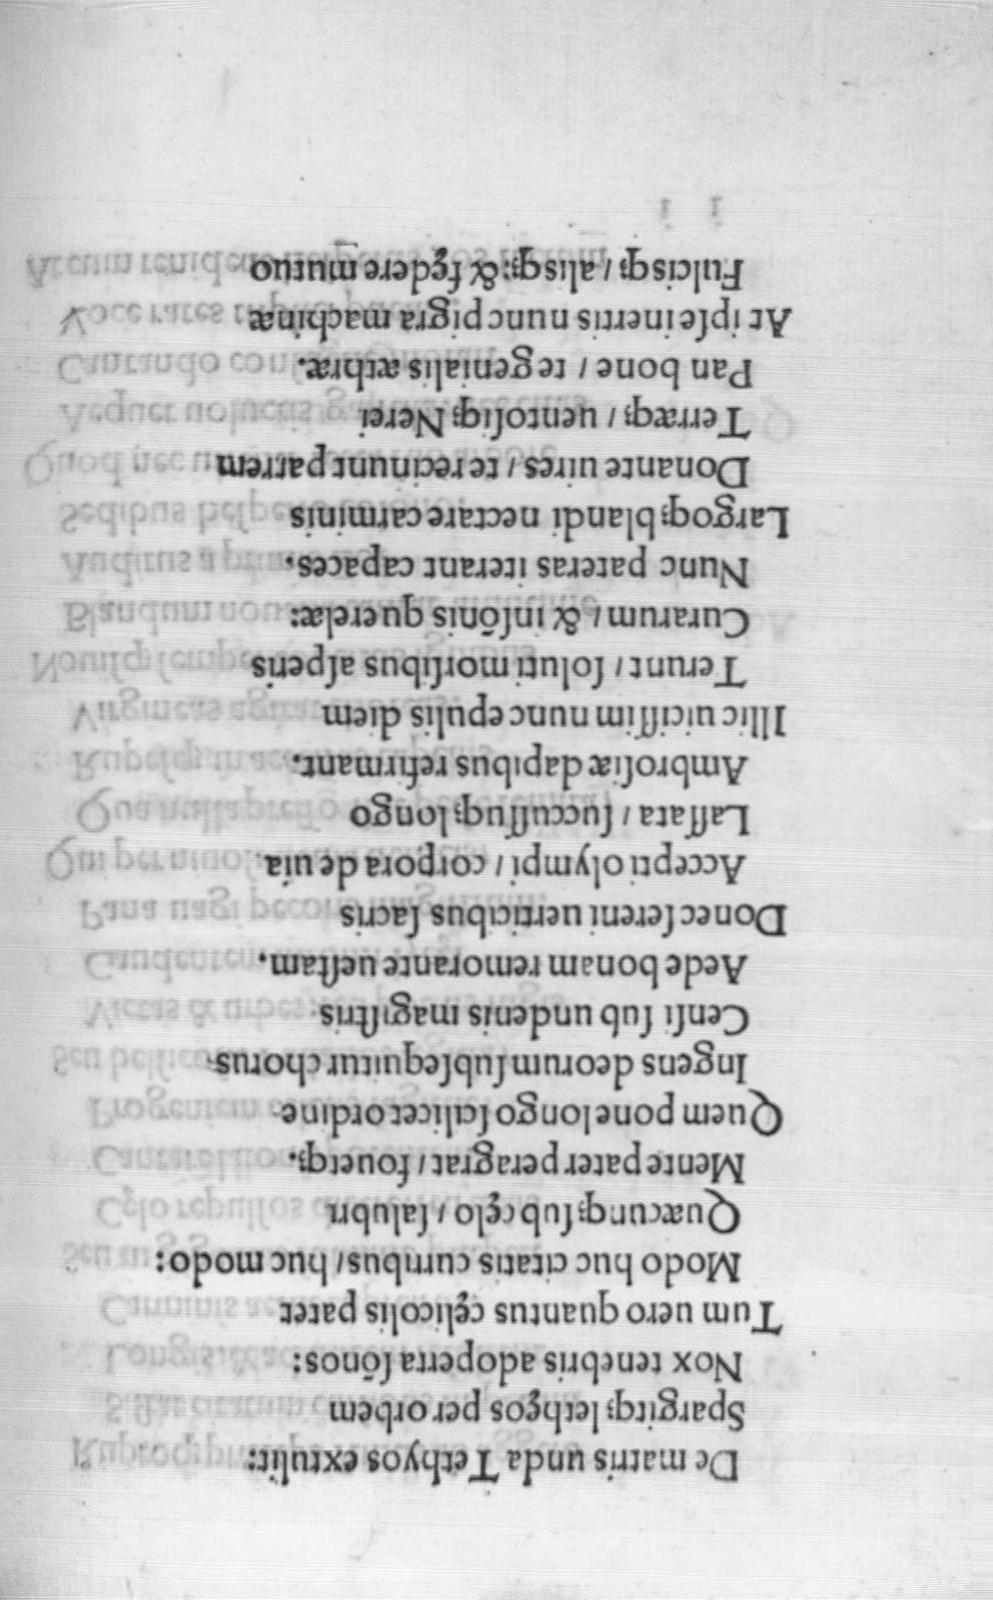 De matris unda Tethyos extulit:
Spargitq; lethęos per orbem
Nox tenebris adoperta sōnos:
Tum uero quantus cęlicolis pater
Modo huc citatis curribus/ huc modo:
Quæcunq; sub cęlo / salubri
Mente pater peragrat / fouetq;.
Quem pone longo scilicet ordine
Ingens deorum subsequitur chorus
Censi sub undenis magistris
Aede bonam remorante uestam.
Donec sereni uerticibus sacris
Accepti olympi / corpora de uia
Lassata / succussuq; longo
Ambrosiæ dapibus refirmant.
Illic uicissim nunc epulis diem
Terunt / soluti morsibus asperis
Curarum / & insōnis querelæ:
Nunc pateras iterant capaces.
Largoq; blandi nectare carminis
Donante uires / te recinunt patrem
Terræq; / uentosiq; Nerei
Pan bone / te genialis æthræ.
At ipse inertis nunc pigra machinæ
Fulcisq; / alisq;: & fędere mutuo
i i